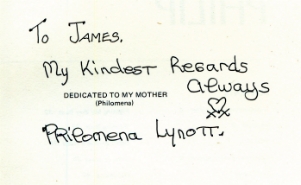 To James,
My Kindest Regards
Always
DEDICATED TO MY MOTHER
(Philomena)
xx
Philomena Lynott.